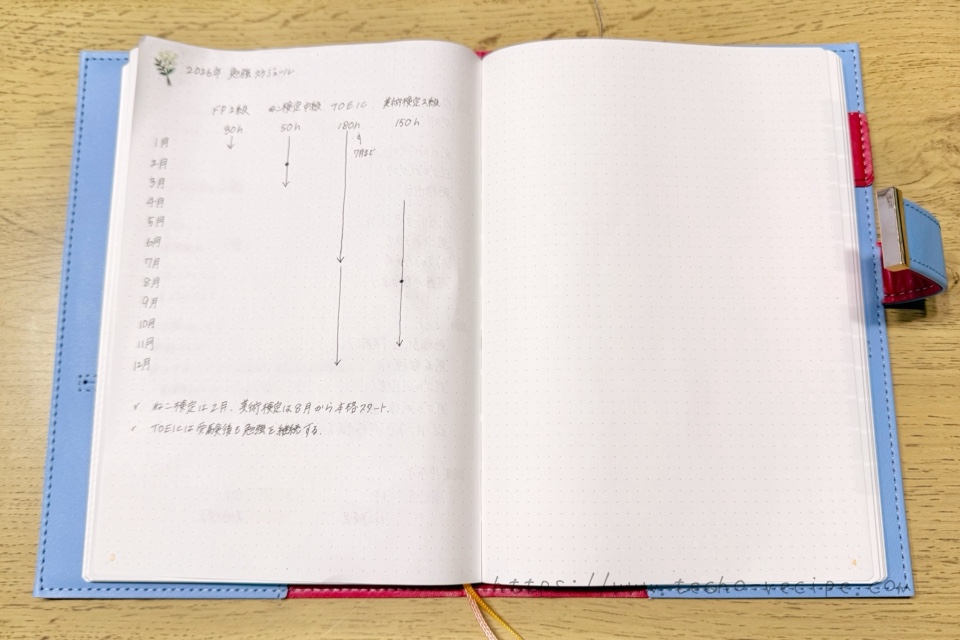 2026年 勉強スケジュール
FP2級 ねこ検定中級 TOEIC 美術検定2級
30h 50h 180h 150h
7月まで
1月
2月
3月
4月
5月
6月
7月
8月
9月
10月
11月
12月
✓ ねこ検定は2月、美術検定は8月から本格スタート。
✓ TOEICは受験後も勉強を継続する。
3
4
https://www.techo-recipe.com